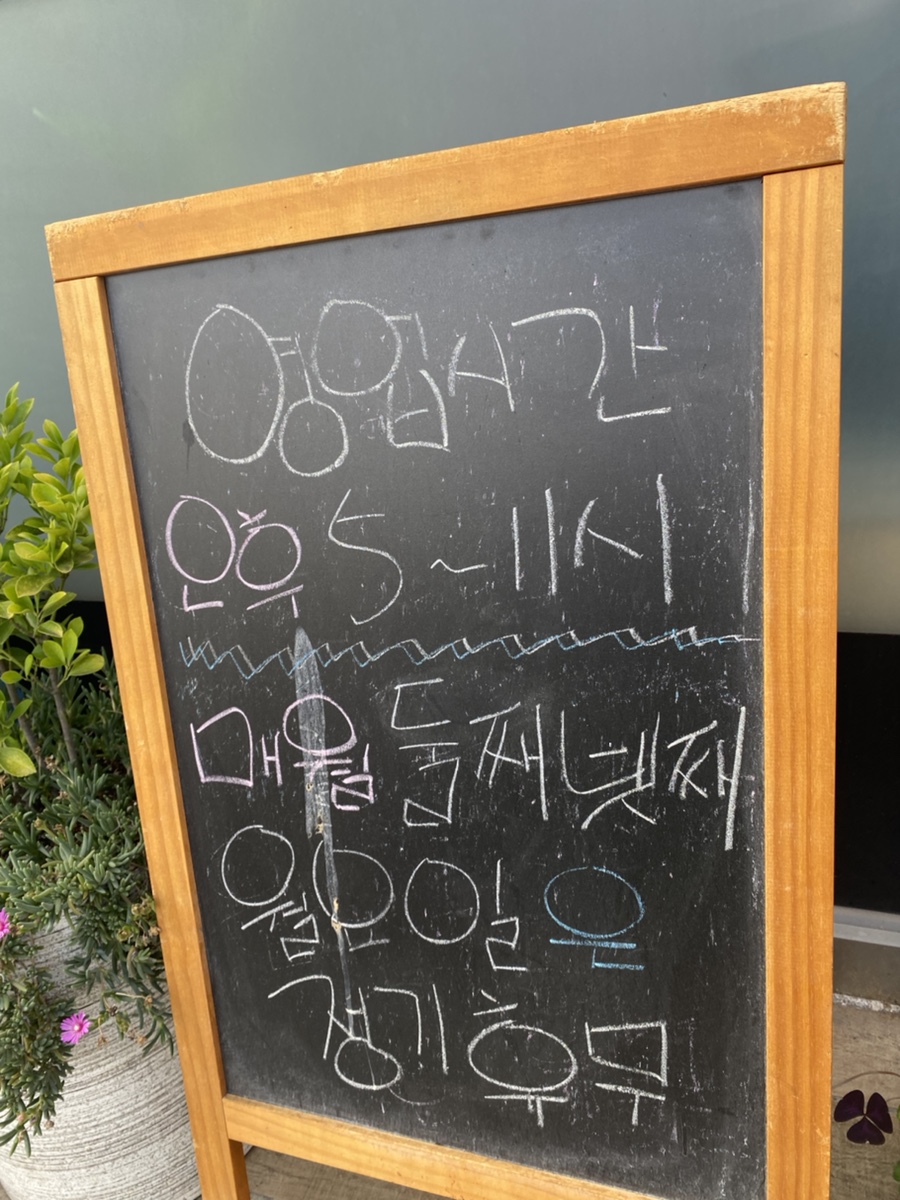 영업시간
오후 5~11시
매월 둘째 넷째
월요일은
정기휴무